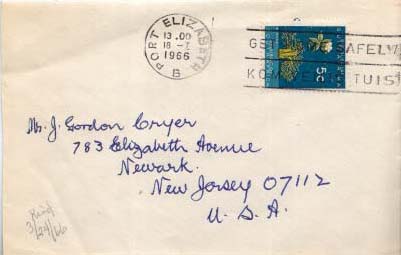 PORT ELIZABETH
13.00
18
1966
B
SAFELY
KOM TUIS
5c
Mr. J. Gordon Cryer
783 Elizabeth Avenue
Newark.
New Jersey 07112
U. S. A.
3/24/66